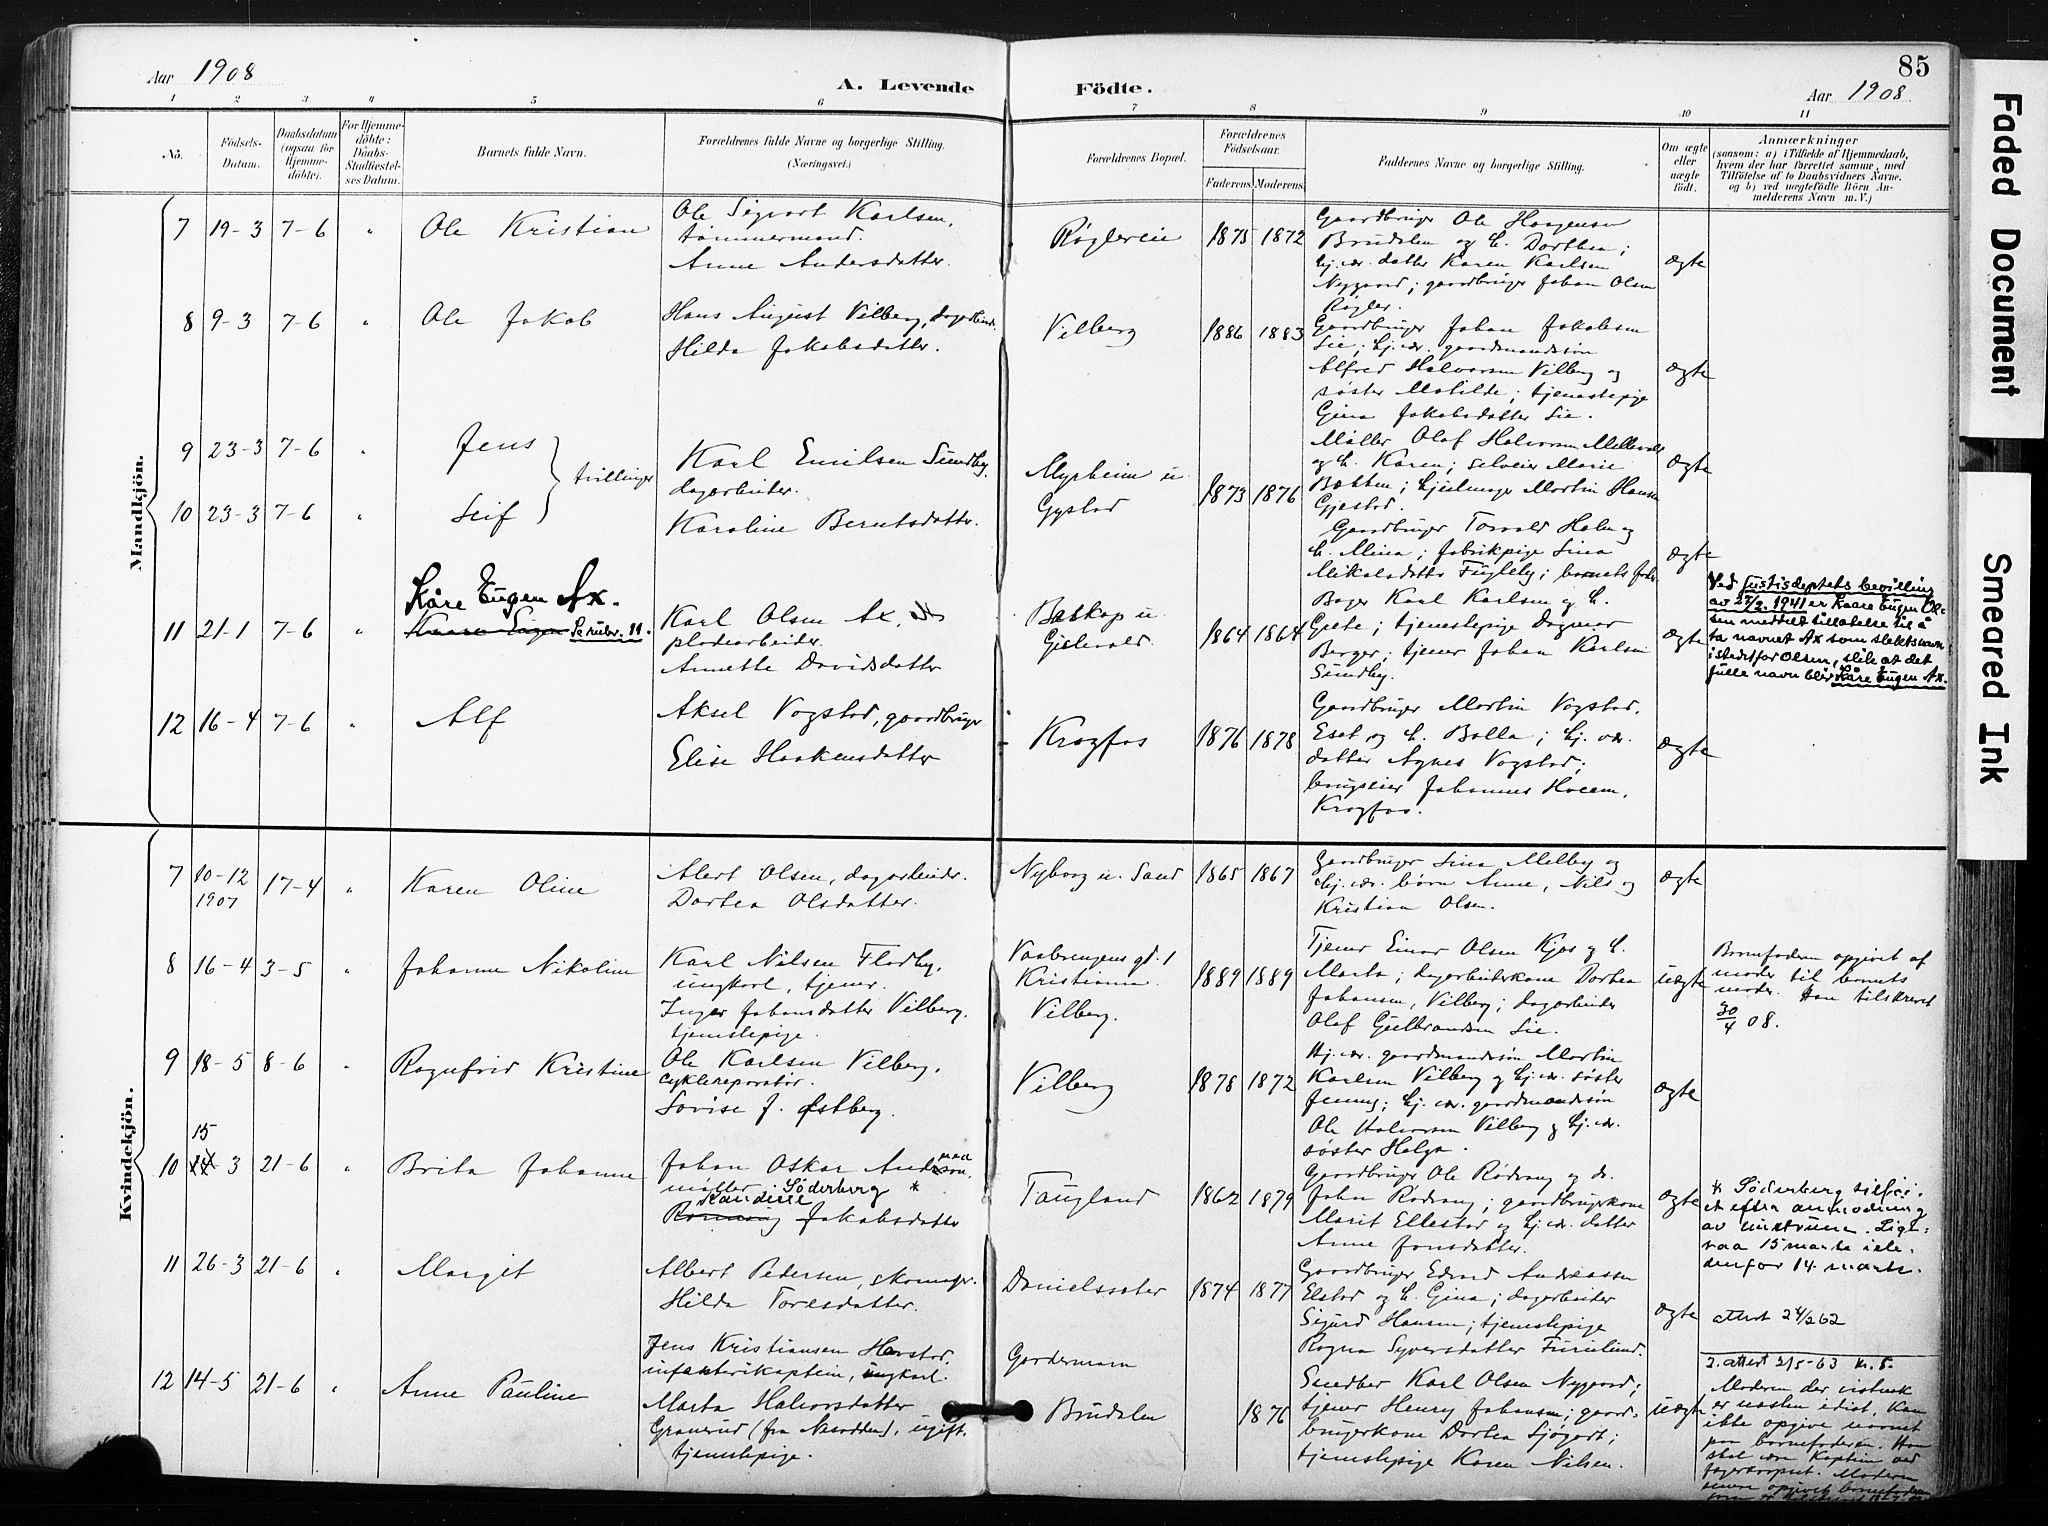 Aar 1908
A. Levende
Födte.
85
Aar 1908.
1 2 3 4 5 6 7 8 9 10 11
No.
Födsels-
Datum.
Daabsdatum
(ogsaa för
Hjemme-
döbte).
For Hjemme-
döbte:
Daabs-
Stadfæstel-
ses Datum.
Barnets fulde Navn.
Forældrenes fulde Navne og borgerlige Stilling.
(Næringsvei.)
Forældrenes Bopæl.
Forældrenes
Födselsaar.
Faderens. Moderens.
Faddernes Navne og borgerlige Stilling.
Om ægte
eller
uægte
födt.
Anmærkninger
(saasom: a) i Tilfælde af Hjemmedaab,
hvem der har forrettet samme, med
Tilföielse af to Daabsvidners Navne,
og b) ved uægtefödte Börn An-
melderens Navn m. V.)
Mandkjön.
7 19-3 7-6 " Ole Kristian
Ole Sigvart Karlsen,
tømmermand.
Anne Andersdatter.
Røglereie 1875 1872
Gaardbruger Ole Haagensen
Brudalen og h. Dorthea;
hj.vær. datter Karen Karlsen
Nygaard; gaardbruger Johan Olsen
Røgler.
ægte
8 9-3 7-6 " Ole Jakob
Hans August Vilberg, dagarbeider.
Hilda Jakobsdatter.
Vilberg 1886 1883
Gaardbruger Johan Jakobsen
Lie; hj.vær. gaardmandssøn
Alfred Halvorsen Vilberg og
søster Matilde; tjenestepige
Gina Jakobsdatter Lie.
ægte
9 23-3 7-6 " Jens
tvillinger
10 23-3 7-6 " Leif
Karl Emilsen Sundby,
dagarbeider.
Karoline Berntsdatter.
Myrheim u.
Gystad 1873 1876
Møller Olaf Halvorsen
og h. Karen; selveier Marie
Bakken; Martin Hansen
Gjestad.
ægte
Gaardbruger Torvald Holm og
h. Mina; fabrikpige Lina
Mikalsdatter Fugleby; barnets fader.
ægte
Kåre Eugen Ax.
11 21-1 7-6 " Kaare Eugen Se rubr. 11.
Karl Olsen Ax,
pladsarbeider.
Annette Davidsdatter
Bakkop u.
1864 1864
Bager Karl Karlsen og h.
Grete; tjenestepige Dagmar
Berger; tjener Johan Karlsen
Sundby.
ægte
Ved Justisdeptets bevilling
av 27/2 1941 er Kaare Eugen Ol-
sen meddelt tillatelse til å
ta navnet Ax som slektsnavn
istedetfor Olsen, slik at det
fulle navn blir Kåre Eugen Ax.
12 16-4 7-6 " Alf
Aksel Vogstad, gaardbruger
Elise Haakensdatter
Krogfos 1876 1878
Gaardbruger Martin Vogstad,
og h. Bolla; hj. vær.
datter Agnes Vogstad;
brugseier Johannes
Krogfos.
ægte
Kvindekjön.
7 10-12 1907 17-4 " Karen Oline
Alert Olsen, dagarbeider.
Dortea Olsdatter.
Nyborg u. Sand 1865 1867
Gaardbruger Lina Melby og
hj. vær. børn Anne, Nils og
Kristian Olsen.
ægte
8 16-4 3-5 " Johanne Nikoline
Karl Nilsen Fladby,
ungkarl, tjener.
Inger Johansdatter Vilberg,
tjenestepige.
Vaalerengens gd. 1
Kristiania.
Vilberg.
1889 1889
Tjener Einar Olsen Kjos og h.
Marta; dagarbeiderkone Dortea
Johansen, Vilberg; dagarbeider
Olaf Gulbrandsen Lie.
uægte
Barnefaderen opgivet af
moder til barnets
moder. Han tilskrevet
30/4 08.
9 18-5 8-6 " Ragnfrid Kristine
Ole Karlsen Vilberg,
cyklereparatør.
Lovise J. Østberg.
Vilberg 1878 1872
Hj. vær. gaardmandssøn Martin
Karlsen Vilberg og hj. vær. søster
Jenny; hj. vær. gaardmandssøn
Ole Halvorsen Vilberg og hj. vær.
søster Helga.
ægte
15
10 14-3 21-6 " Brita Johanne
Johan Oskar Anderson,
møller. Söderberg *
Kandine
Jakobsdatter
Taugland 1862 1879
Gaardbruger Ole Rødvang og do.
John Rødvang; gaardbrugerkone
Marit Ellestad og hj. vær. datter
Anne Jonsdatter.
ægte
* Söderberg tilföi-
et efter anmodning
av
raa 15 marts iste-
denfor 14. marts.
11 26-3 21-6 " Margit
Albert Pedersen, skomager.
Hilda Toresdatter.
Danielssæter 1874 1877
Gaardbruger Edvard Andreassen
Elstad og h. Gina; dagarbeider
Sigurd Hansen; tjenestepige
Ragna Syversdatter Furulund.
ægte
attest 24/2 62
12 14-5 21-6 " Anne Pauline
Jens Kristiansen Hovstad,
infanterikaptein, ungkarl.
Marta Halvorsdatter
Granerud (fra Næsodden), ugift.
tjenestepige.
Gardermoen
Brudalen
1876
Smedber Karl Olsen Nygaard;
tjener Henry Johansen; gaard-
brugerkone Dortea Sjøgart;
tjenestepige Karen Nilsen.
uægte
2. attest 2/5-63 kr. 5.
Moderen der
er næsten idiot, kan
ikke opgive navnet
paa barnefaderen. Han
skal være Kaptein ved
Moderen
senere opgivet barnefaderen
Faded Document
Smeared Ink